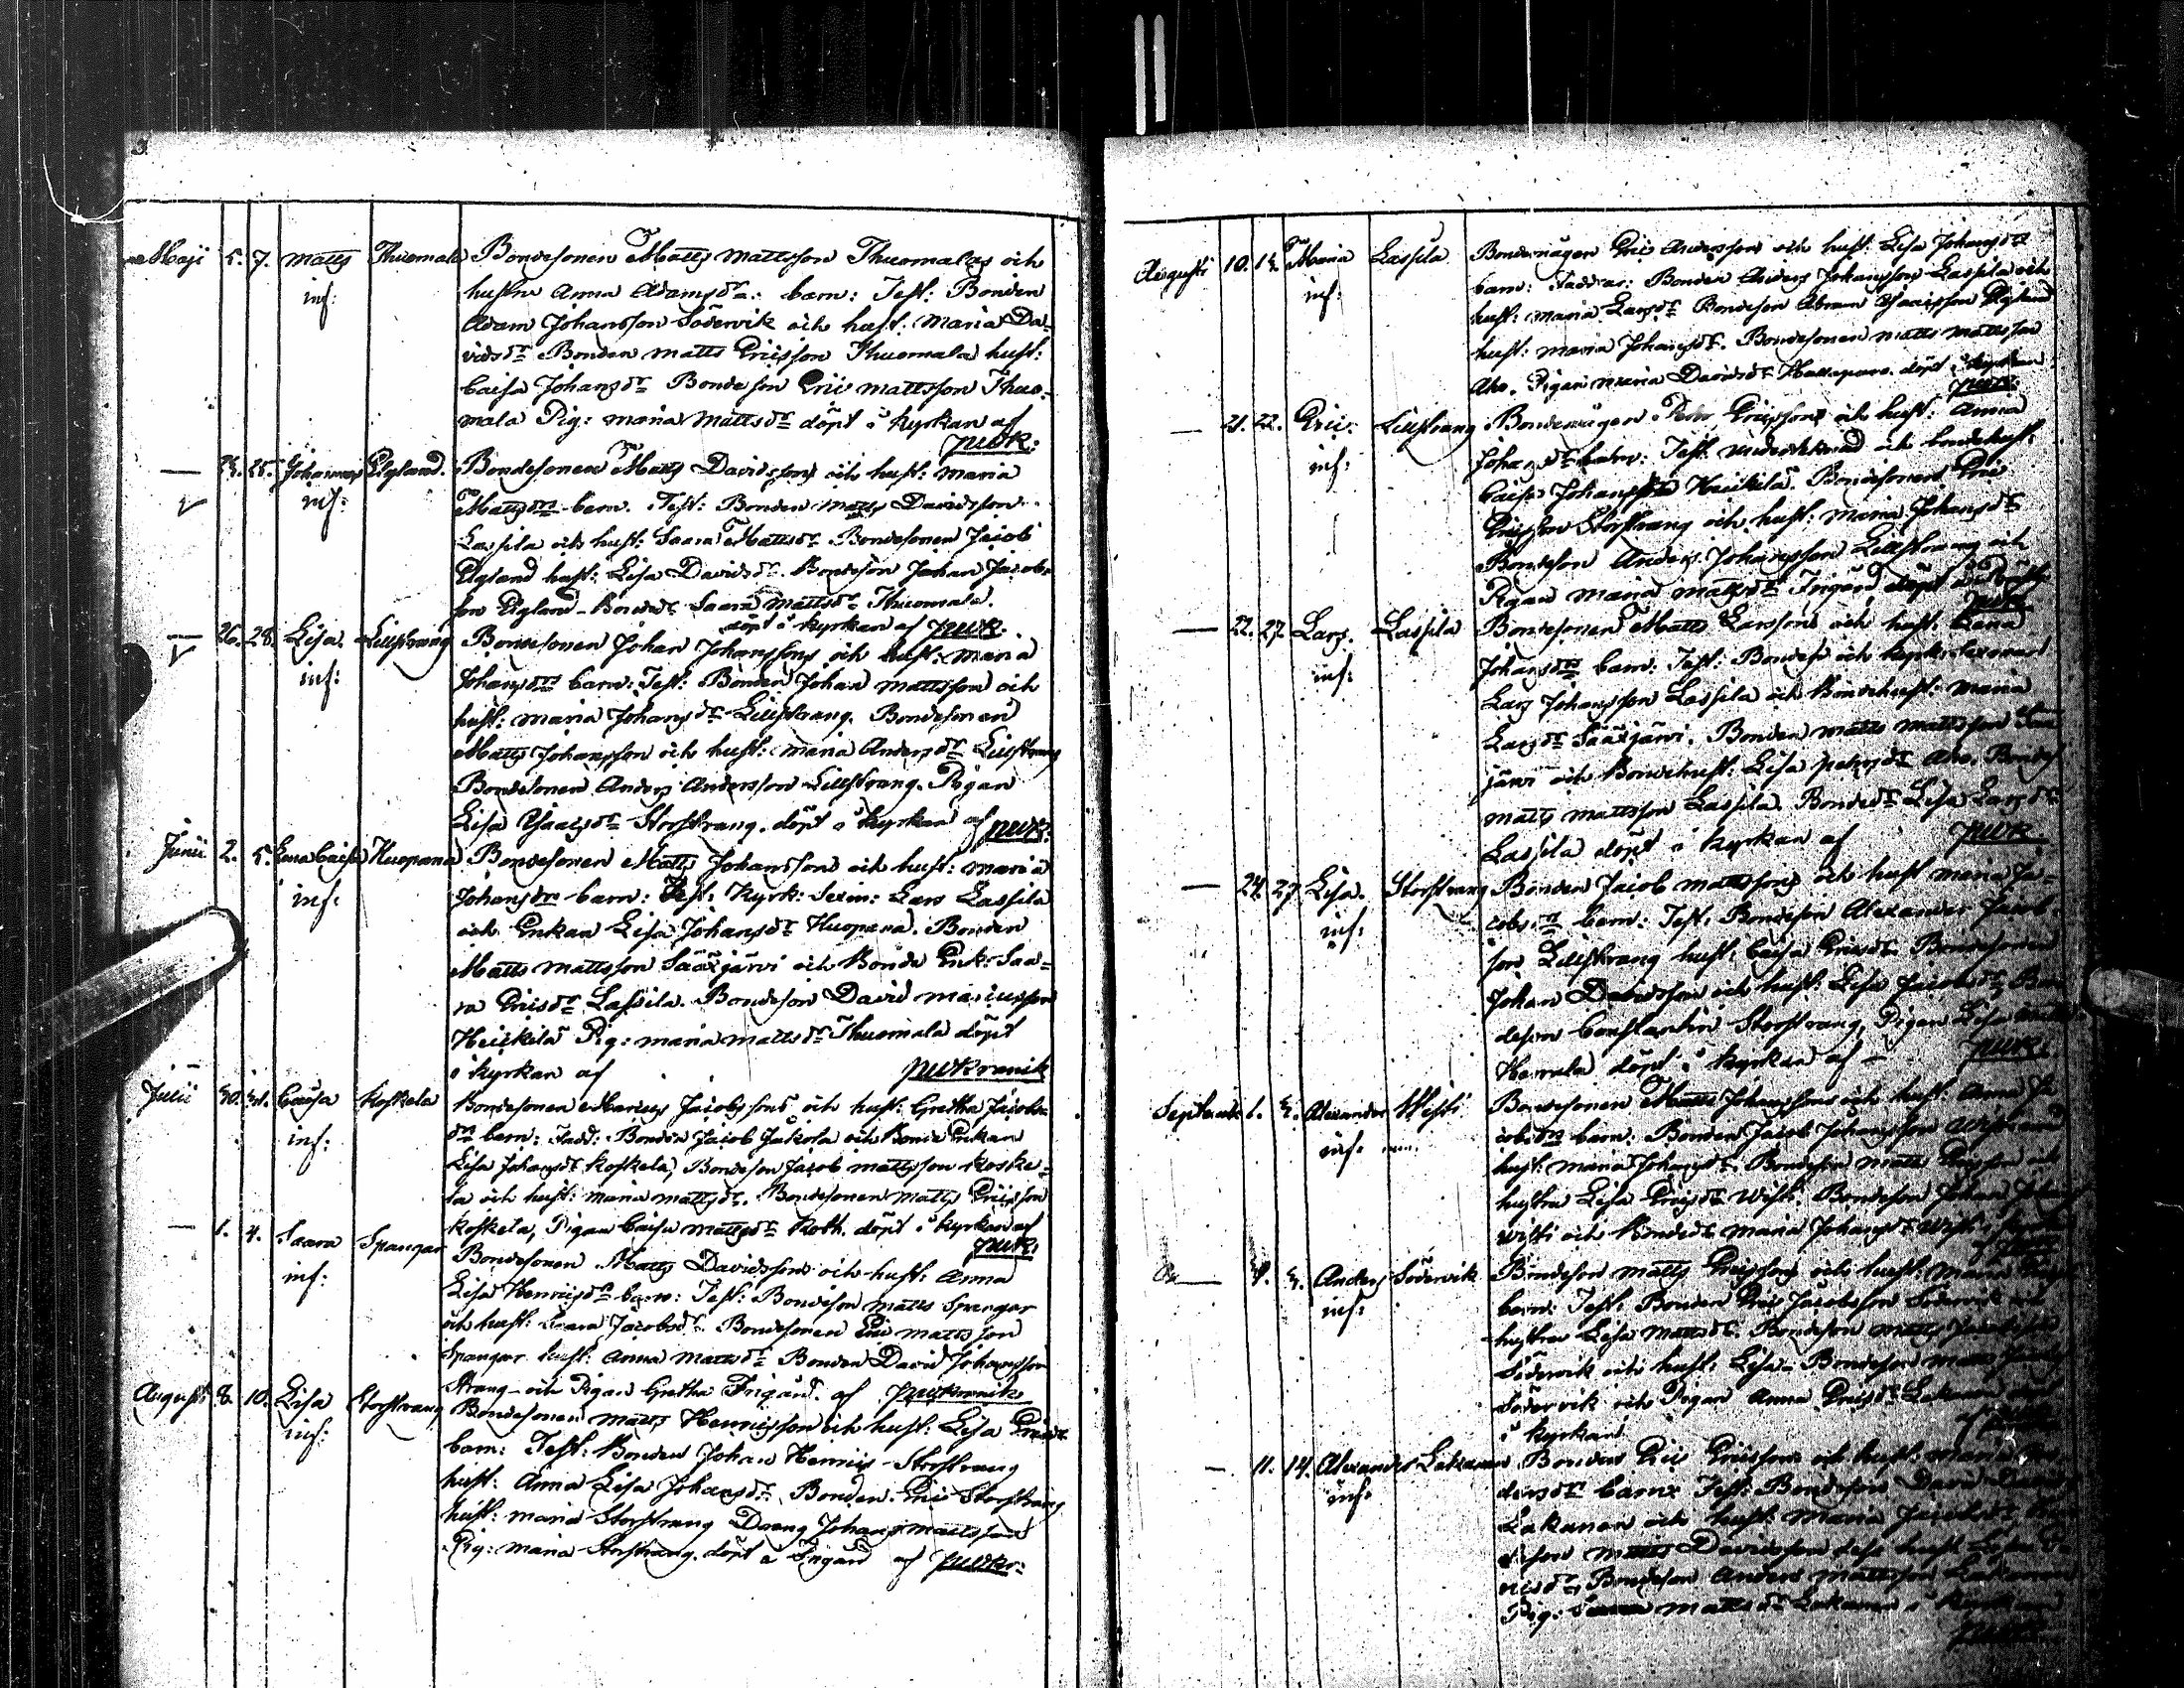 Maji 5. 7. Matts Thuomala Bondesonen Matts Mattsson Thuomalas och
inf: hustru Anna Adamsdrs: barn: Test: Bonden
Adam Johansson Södervik och hust: Maria Da-
vidsdr Bonden Matts Ericsson Thuomala hust:
Caisa Johansdr Bondeson Eric Mattsson Thuo-
mala Pig: Maria Mattsdr döpt i kyrkan af
JWK:
— 23. 25. Johannes Elgland. Bondesonen Matts Davidssons och hust: Maria
inf: Mattsdrs barn. Test: Bonden Matts Davidsson
Lassila och hust: Saara Mattsdr Bondesonen Jacob
Elgland hust: Lisa Davidsdr. Bondeson Johan Jacobs-
son Elgland - Bondedr Saara Mattsdr Thuomala.
döpt i kyrkan af JWK.
— 26. 28. Lisa. Lillstrang Bondesonen Johan Johanssons och hust: Maria
inf: Johansdrs barn: Test: Bonden Johan Mattsson och
hust: Maria Johansdr Lillstrang. Bondesonen
Matts Johansson och hust: Maria Andersdr Lillstrang
Bondesonen Anders Andersson Lillstrang. Pigan
Lisa Isaacsdr Storstrang. döpt i kyrkan af JWK:
Junii 2. 5. Lena Caisa Huopana Bondesonen Matts Johanssons och hust: Maria
inf: Johansdrs barn: Test: Kyrk: Sexm: Lars Lassila
och Enkan Lisa Johansdr Huopana. Bonden
Matts Mattsson Sääxjärvi och Bonde Enk: Saa-
ra Ericsdr Lassila. Bondeson David Mariusson
Heickilä Pig: Maria Mattsdr Thuomala döpt
i kyrkan af JWKranck
Julii 30. 31. Caisa Koskela Bondesonen Marius Jacobssons och hust: Gretha Jacobs-
inf: drs barn: Fadd: Bonden Jacob Jukola och Bonde Enkan
Lisa Johansdr Koskela, Bondeson Jacob Mattsson Koske-
la och hust: Maria Mattsdr. Bondesonen Matts Ericsson
Koskela, Pigan Caisa Mattsdr Koth. döpt i kyrkan af
JWK:
— 1. 4. Saara Spangar Bondesonen Matts Davidssons och hust: Anna
inf: Lisa Henricsdrs barn: Test: Bondeson Matts Spangar
och hust: Saara Jacobsdr. Bondesonen Eric Mattsson
Spangar hust: Anna Mattsdr Bonden David Johansson
Strang och Pigan Gretha Frigård. af JWKranck
Augusti 8. 10. Lisa Storstrang Bondesonen Matts Henricsson och hust: Lisa Ericsdrs
inf: barn: Test: Bonden Johan Henrics. Storstrang
hust: Anna Lisa Johansdr, Bonden Eric Storstrang
hust: Maria Storstrang Dräng Johans Mattsson
Pig: Maria Storstrang. döpt å Frigård af JWKr:
Augusti 10. 12. Maria Lassila Bondemågen Eric Anderssons och hust: Lisa Johansdrs
inf: barn: Faddrar: Bonden Anders Johansson Lassila och
hust: Maria Larsdr Bondeson Abram Isacsson Elgland
hust: Maria Johansdr. Bondesonen Matts Mattsson
Aho. Pigan Maria Davidsdr döpt i kyrkan
JWK:
— 21. 22. Eric. Lillstrang Bondemågen Petter Ericssons och hust: Anna
inf: Johansdrs barn: Test: och bondehust:
Caisa Johansdr Heickilä. Bondesonen Eric
Ericsson Storstrang och hust: Maria Johansdr
Bondeson Anders Johansson Lillstrang och
Pigan Maria Mattsdr Frigård döpt
JWK.
— 22. 27. Lars. Lassila Bondesonen Matts Larssons och hust: Lena
inf: Johansdrs barn: Test: Bonden och kyrk: Sexman
Lars Johansson Lassila och Bondehust: Maria
Larsdr Sääxjärvi. Bonden Matts Mattsson Sääx-
järvi och Bondehust: Lisa Petersdr Aho.
Matts Mattsson Lassila. Bondedr Lisa Larsdr
Lassila döpt i kyrkan af JWK
— 24. 27. Lisa. Storstrang Bonden Jacob Mattssons och hust Maria Ja-
inf: cobsdrs barn: Test: Bondeson Alexander Jacobs-
son Lillstrang hust: Caisa Ericsdr Bondesonen
Johan Davidsson och hust: Lisa Jacobsdr, Bon-
deson Constantin Storstrang, Pigan Lisa
Herrala döpt i kyrkan af JWK:
Septemb: 1. 3. Alexander Wisti Bondesonen Matts Johanssons och hust: Anna Ja-
inf: cobsdrs barn: Bonden Jacob Johansson
hust: Maria Johansdr. Bondeson Matts Ericsson och
hustru Lisa Ericsdr Wisti. Bondeson Johan
Wisti och Bondedr Maria Johansdr Wisti
— 4. Anders Södervik Bondeson Matts Ericssons och hust: Maria
inf: barn: Test: Bonden Eric Jacobsson Södervik och
hustru Lisa Mattsdr. Bondeson Matts
Södervik och hust: Lisa. Bondeson Matts
Södervik och Pigan Anna Ericsdr Lakanen
i kyrkan
— 11. 14. Alexander Lakanen Bonden Eric Ericssons och hust: Maria
inf: dersdrs barn: Test: Bondeson David
Lakanen och hust: Maria Jacobsdr,
deson Matts Davidsson dess hust Lisa
ricsdr, Bondeson Anders Mattsson Lakanen
Pig: Mattsdr Lakanen i